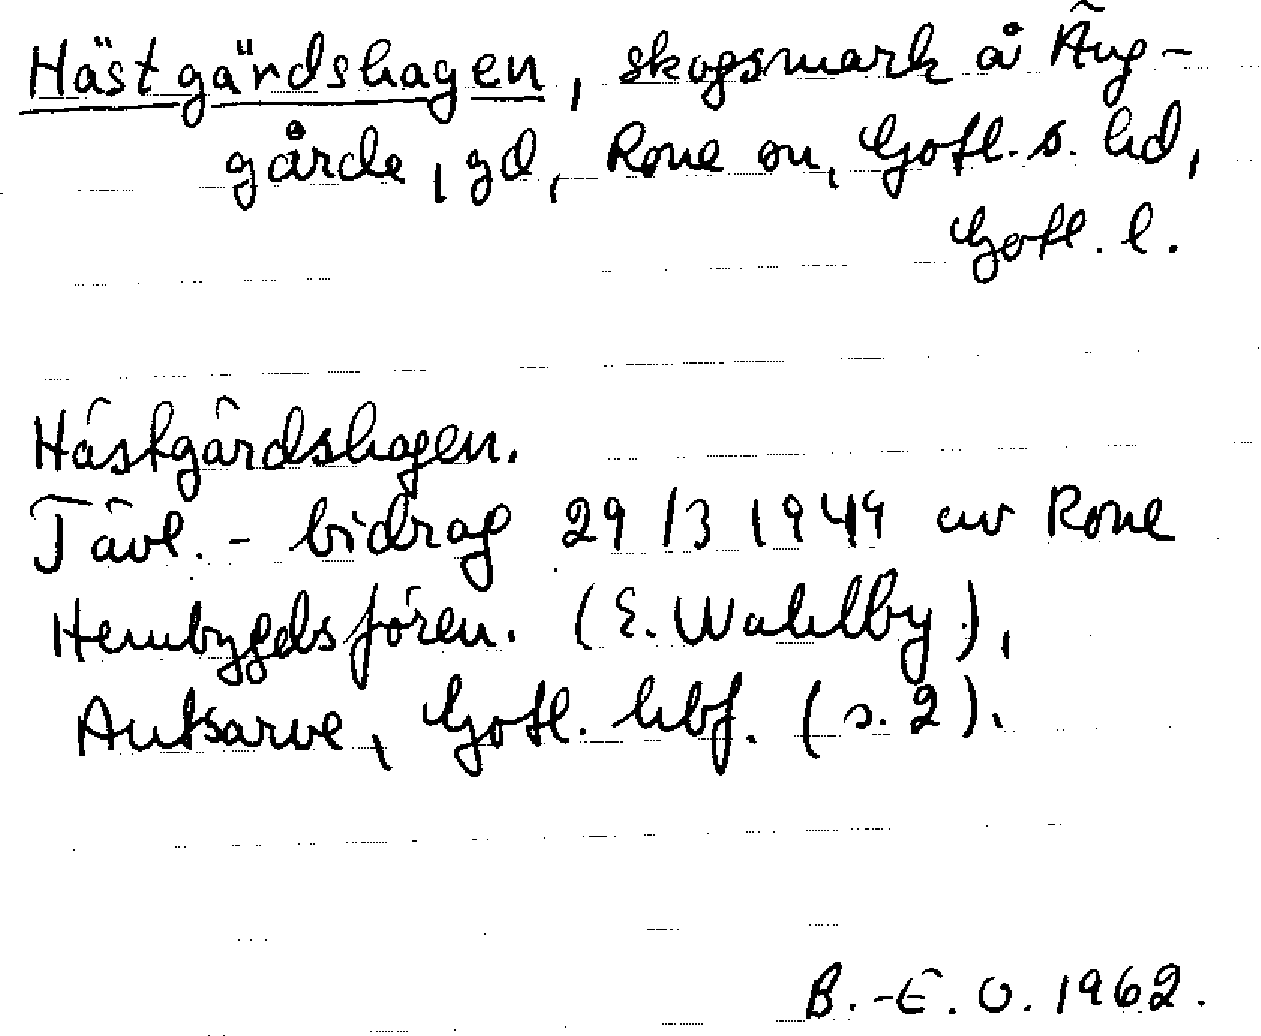 Hästgärdshagen, skogsmark å Äng-
gårde, gd, Rone sn, Gotl. s. hd,
Gotl. l.
Hästgärdshagen.
Tävl. - bidrag 29/3 1949 av Rone
Hembygdsfören. (E. Wahlby),
Autsarve, Gotl. hbf. (s. 2).
B.-E. O. 1962.